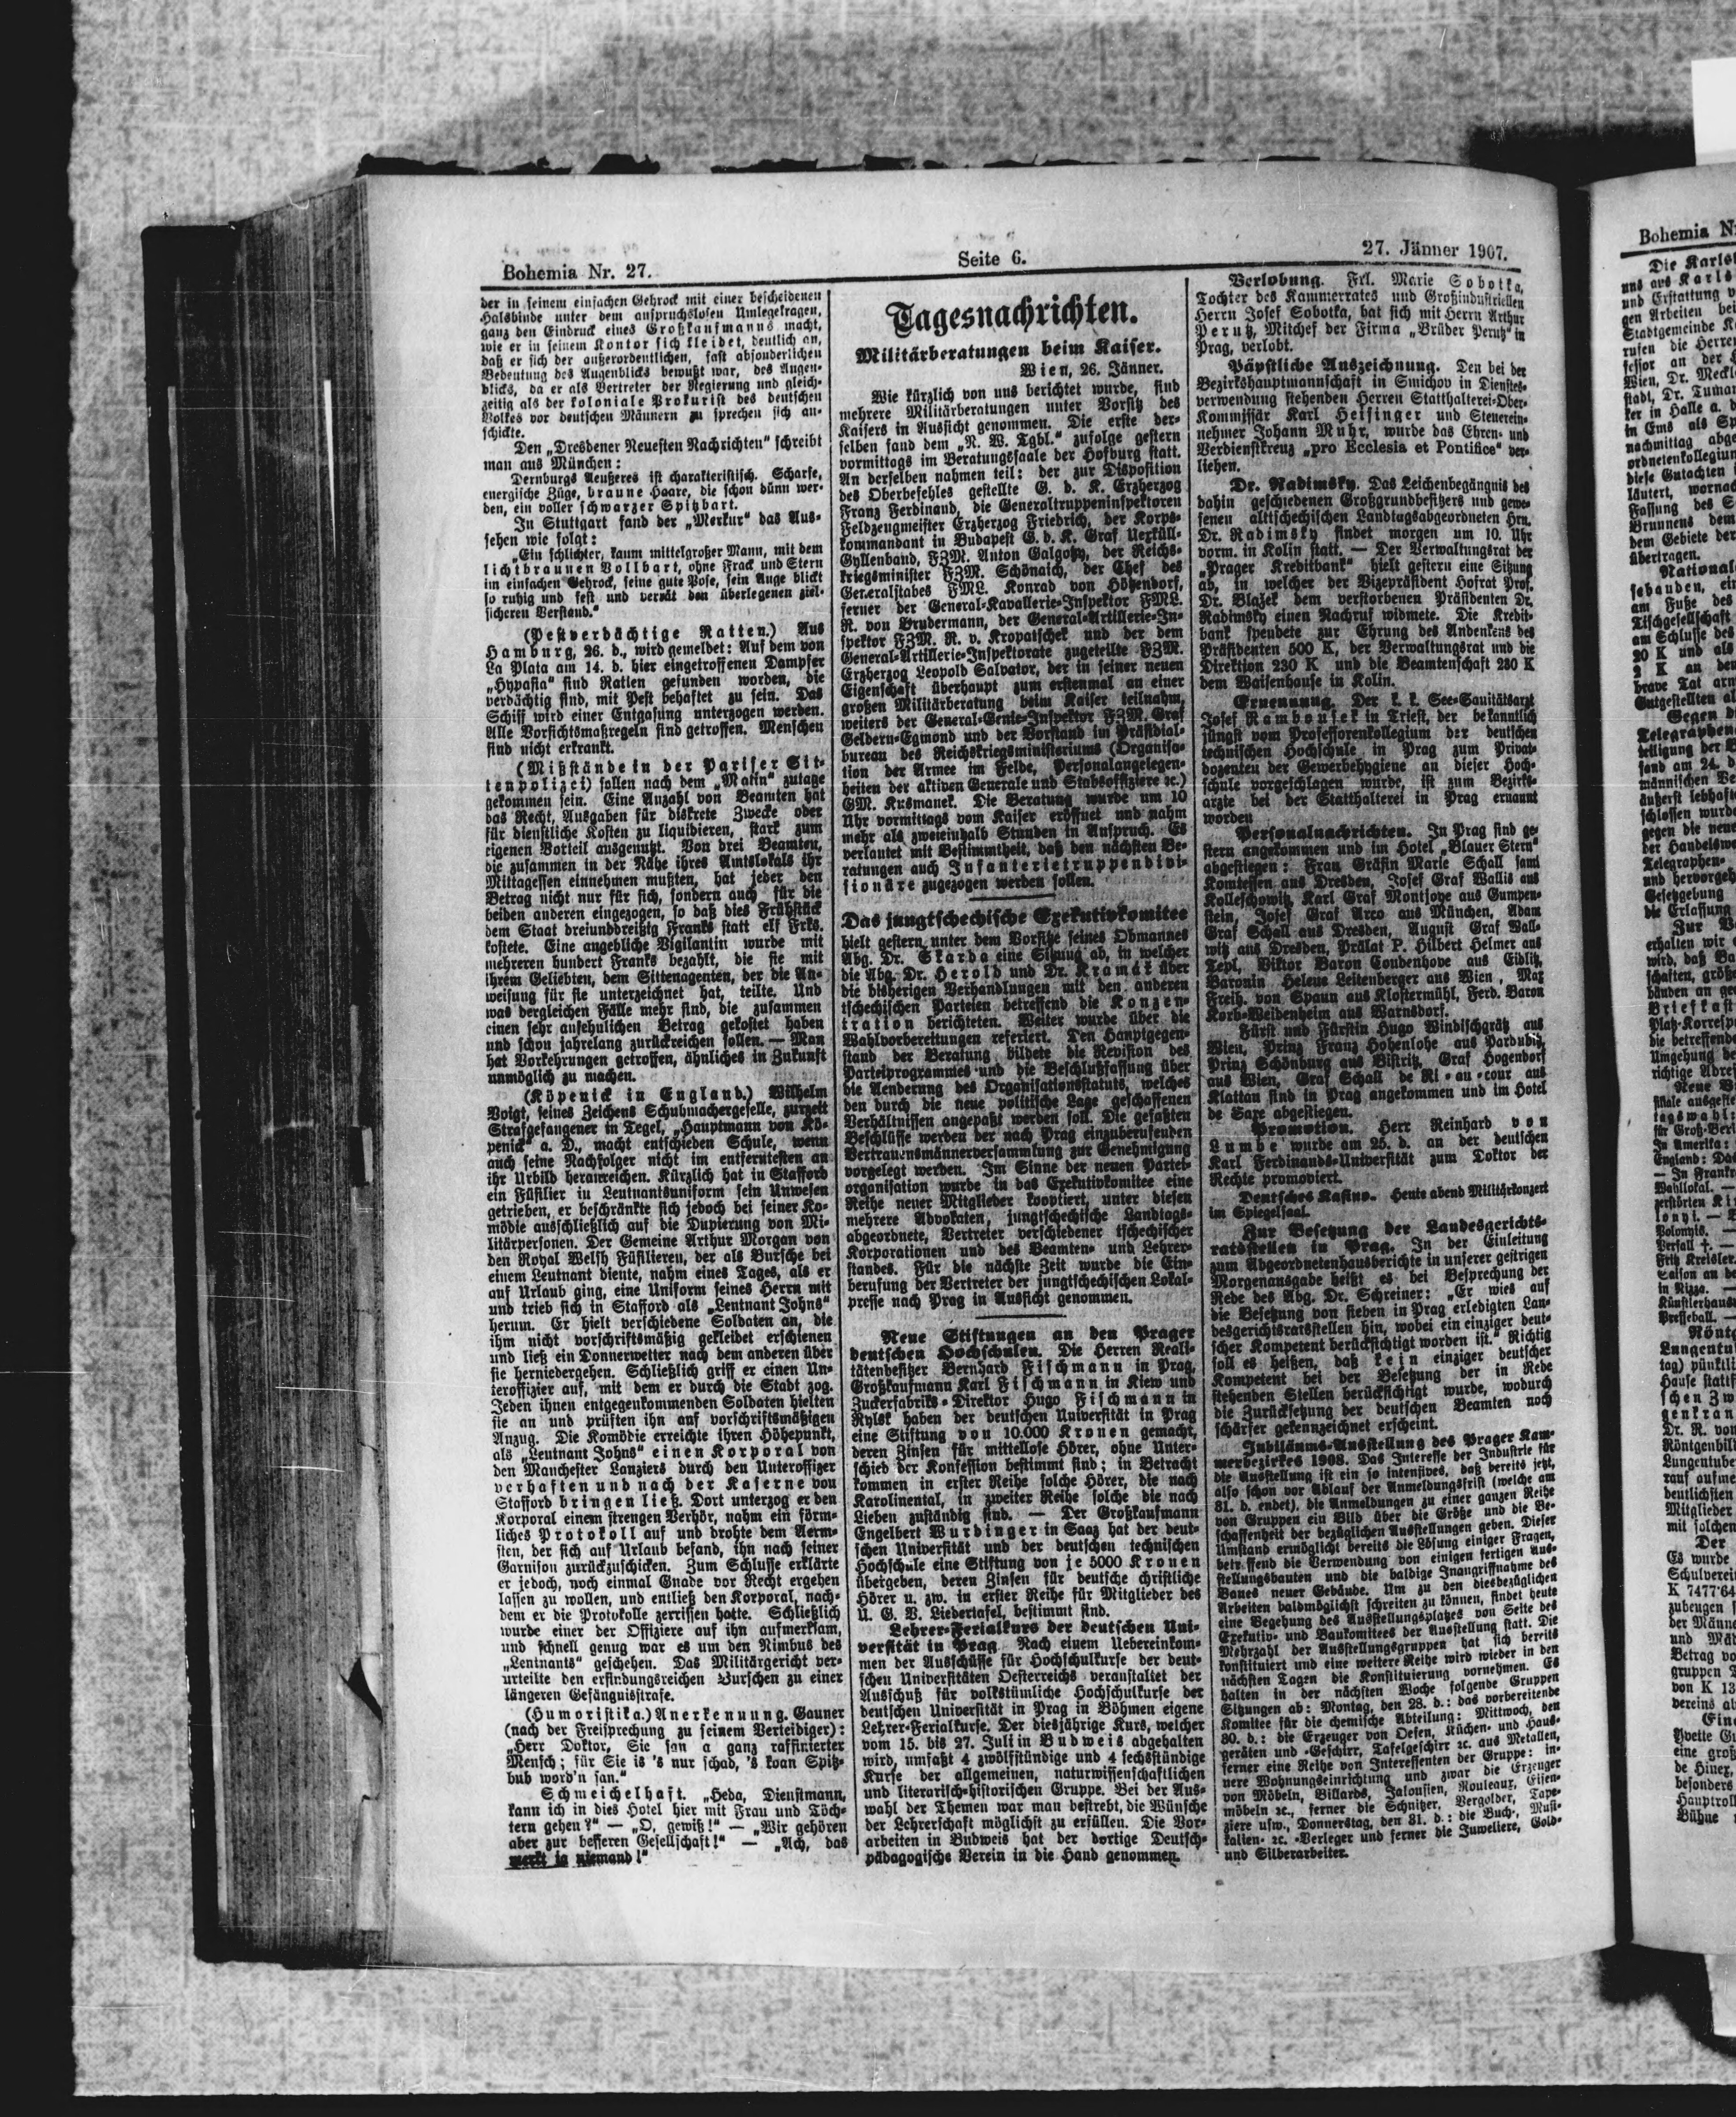 Bohemia Nr. 27.
Seite 6.
27. Jänner 1907.
der in seinem einfachen Gehrock mit einer bescheidenen
Halsbinde unter dem anspruchslosen Umlegekragen,
ganz den Eindruck eines Großkaufmanns macht,
wie er in seinem Kontor sich kleidet, deutlich an,
daß er sich der außerordentlichen, fast absonderlichen
Bedeutung des Augenblicks bewußt war, des Augen-
blicks, da er als Vertreter der Regierung und gleich-
zeitig als der koloniale Prokurist des deutschen
Volkes vor deutschen Männern zu sprechen sich an-
schickte.
Den „Dresdener Neuesten Nachrichten" schreibt
man aus München:
Dernburgs Aeußeres ist charakteristisch. Scharfe,
energische Züge, braune Haare, die schon dünn wer-
den, ein voller schwarzer Spitzbart.
In Stuttgart fand der „Merkur" das Aus-
sehen wie folgt:
„Ein schlichter, kaum mittelgroßer Mann, mit dem
lichtbraunen Vollbart, ohne Frack und Stern
im einfachen Gehrock, seine gute Pose, sein Auge blickt
so ruhig und fest und verrät den überlegenen ziel-
sicheren Verstand."
(Pestverdächtige Ratten.) Aus
Hamburg, 26. d., wird gemeldet: Auf dem von
La Plata am 14. d. hier eingetroffenen Dampfer
„Hypasia" sind Ratten gefunden worden, die
verdächtig sind, mit Pest behaftet zu sein. Das
Schiff wird einer Entgasung unterzogen werden.
Alle Vorsichtsmaßregeln sind getroffen. Menschen
sind nicht erkrankt.
(Mißstände in der Pariser Sit-
tenpolizei) sollen nach dem „Matin" zutage
gekommen sein. Eine Anzahl von Beamten hat
das Recht, Ausgaben für diskrete Zwecke oder
für dienstliche Kosten zu liquidieren, stark zum
eigenen Vorteil ausgenutzt. Von drei Beamten,
die zusammen in der Nähe ihres Amtslokals ihr
Mittagessen einnehmen mußten, hat jeder den
Betrag nicht nur für sich, sondern auch für die
beiden anderen eingezogen, so daß dies Frühstück
dem Staat dreiunddreißig Franks statt elf Frks.
kostete. Eine angebliche Vigilantin wurde mit
mehreren hundert Franks bezahlt, die sie mit
ihrem Geliebten, dem Sittenagenten, der die An-
weisung für sie unterzeichnet hat, teilte. Und
was dergleichen Fälle mehr sind, die zusammen
einen sehr ansehnlichen Betrag gekostet haben
und schon jahrelang zurückreichen sollen. — Man
hat Vorkehrungen getroffen, ähnliches in Zukunft
unmöglich zu machen.
(Köpenick in England.) Wilhelm
Voigt, seines Zeichens Schuhmachergeselle, zurzeit
Strafgefangener in Tegel, „Hauptmann von Kö-
penick" a. D., macht entschieden Schule, wenn
auch seine Nachfolger nicht im entferntesten an
ihr Urbild heranreichen. Kürzlich hat in Stafford
ein Füsilier in Leutnantsuniform sein Unwesen
getrieben, er beschränkte sich jedoch bei seiner Ko-
mödie ausschließlich auf die Dupierung von Mi-
litärpersonen. Der Gemeine Arthur Morgan von
den Royal Welsh Füsilieren, der als Bursche bei
einem Leutnant diente, nahm eines Tages, als er
auf Urlaub ging, eine Uniform seines Herrn mit
und trieb sich in Stafford als „Leutnant Johns"
herum. Er hielt verschiedene Soldaten an, die
ihm nicht vorschriftsmäßig gekleidet erschienen
und ließ ein Donnerwetter nach dem anderen über
sie herniedergehen. Schließlich griff er einen Un-
teroffizier auf, mit dem er durch die Stadt zog.
Jeden ihnen entgegenkommenden Soldaten hielten
sie an und prüften ihn auf vorschriftsmäßigen
Anzug. Die Komödie erreichte ihren Höhepunkt,
als „Leutnant Johns" einen Korporal von
den Manchester Lanziers durch den Unteroffizer
verhaften und nach der Kaserne von
Stafford bringen ließ. Dort unterzog er den
Korporal einem strengen Verhör, nahm ein förm-
liches Protokoll auf und drohte dem Aerm-
sten, der sich auf Urlaub befand, ihn nach seiner
Garnison zurückzuschicken. Zum Schlusse erklärte
er jedoch, noch einmal Gnade vor Recht ergehen
lassen zu wollen, und entließ den Korporal, nach-
dem er die Protokolle zerrissen hatte. Schließlich
wurde einer der Offiziere auf ihn aufmerksam,
und schnell genug war es um den Nimbus des
„Leutnants" geschehen. Das Militärgericht ver-
urteilte den erfindungsreichen Burschen zu einer
längeren Gefängnisstrafe.
(Humoristika.) Anerkennung. Gauner
(nach der Freisprechung zu seinem Verteidiger):
„Herr Doktor, Sie san a ganz raffinierter
Mensch; für Sie is 's nur schad, 's koan Spitz-
bub word'n san."
Schmeichelhaft. „Heda, Dienstmann,
kann ich in dies Hotel hier mit Frau und Töch-
tern gehen?" — „O, gewiß!" — „Wir gehören
aber zur besseren Gesellschaft!" — „Ach, das
merkt ja niemand!"
Tagesnachrichten.
Militärberatungen beim Kaiser.
Wien, 26. Jänner.
Wie kürzlich von uns berichtet wurde, sind
mehrere Militärberatungen unter Vorsitz des
Kaisers in Aussicht genommen. Die erste der-
selben fand dem „N. W. Tgbl." zufolge gestern
vormittags im Beratungssaale der Hofburg statt.
An derselben nahmen teil: der zur Disposition
des Oberbefehles gestellte G. d. K. Erzherzog
Franz Ferdinand, die Generaltruppeninspektoren
Feldzeugmeister Erzherzog Friedrich, der Korps-
kommandant in Budapest G. d. K. Graf Uexküll-
Gyllenband, FZM. Anton Galgotzy, der Reichs-
kriegsminister FZM. Schönaich, der Chef des
Generalstabes FML. Konrad von Hötzendorf,
ferner der General-Kavallerie-Inspektor FML.
R. von Brudermann, der General-Artillerie-In-
spektor FZM. R. v. Kropatschek und der dem
General-Artillerie-Inspektorate zugeteilte FZM.
Erzherzog Leopold Salvator, der in seiner neuen
Eigenschaft überhaupt zum erstenmal an einer
großen Militärberatung beim Kaiser teilnahm,
weiters der General-Genie-Inspektor FZM. Graf
Geldern-Egmond und der Vorstand im Präsidial-
bureau des Reichskriegsministeriums (Organisa-
tion der Armee im Felde, Personalangelegen-
heiten der aktiven Generale und Stabsoffiziere ꝛc.)
GM. Kusmanek. Die Beratung wurde um 10
Uhr vormittags vom Kaiser eröffnet und nahm
mehr als zweieinhalb Stunden in Anspruch. Es
verlautet mit Bestimmtheit, daß den nächsten Be-
ratungen auch Infanterietruppendivi-
sionäre zugezogen werden sollen.
Das jungtschechische Exekutivkomitee
hielt gestern unter dem Vorsitze seines Obmannes
Abg. Dr. Skarda eine Sitzung ab, in welcher
die Abg. Dr. Herold und Dr. Kramář über
die bisherigen Verhandlungen mit den anderen
tschechischen Parteien betreffend die Konzen-
tration berichteten. Weiter wurde über die
Wahlvorbereitungen referiert. Den Hauptgegen-
stand der Beratung bildete die Revision des
Parteiprogrammes und die Beschlußfassung über
die Aenderung des Organisationsstatuts, welches
den durch die neue politische Lage geschaffenen
Verhältnissen angepaßt werden soll. Die gefaßten
Beschlüsse werden der nach Prag einzuberufenden
Vertrauensmännerversammlung zur Genehmigung
vorgelegt werden. Im Sinne der neuen Partei-
organisation wurde in das Exekutivkomitee eine
Reihe neuer Mitglieder kooptiert, unter diesen
mehrere Advokaten, jungtschechische Landtags-
abgeordnete, Vertreter verschiedener tschechischer
Korporationen und des Beamten- und Lehrer-
standes. Für die nächste Zeit wurde die Ein-
berufung der Vertreter der jungtschechischen Lokal-
presse nach Prag in Aussicht genommen.
Neue Stiftungen an den Prager
deutschen Hochschulen. Die Herren Reali-
tätenbesitzer Bernhard Fischmann in Prag,
Großkaufmann Karl Fischmann in Kiew und
Zuckerfabriks-Direktor Hugo Fischmann in
Rylsk haben der deutschen Universität in Prag
eine Stiftung von 10.000 Kronen gemacht,
deren Zinsen für mittellose Hörer, ohne Unter-
schied der Konfession bestimmt sind; in Betracht
kommen in erster Reihe solche Hörer, die nach
Karolinental, in zweiter Reihe solche die nach
Lieben zuständig sind. — Der Großkaufmann
Engelbert Wurdinger in Saaz hat der deut-
schen Universität und der deutschen technischen
Hochschule eine Stiftung von je 5000 Kronen
übergeben, deren Zinsen für deutsche christliche
Hörer u. zw. in erster Reihe für Mitglieder des
U. G. V. Liedertafel, bestimmt sind.
Lehrer-Ferialkurs der deutschen Uni-
versität in Prag. Nach einem Uebereinkom-
men der Ausschüsse für Hochschulkurse der deut-
schen Universitäten Oesterreichs veranstaltet der
Ausschuß für volkstümliche Hochschulkurse der
deutschen Universität in Prag in Böhmen eigene
Lehrer-Ferialkurse. Der diesjährige Kurs, welcher
vom 15. bis 27. Juli in Budweis abgehalten
wird, umfaßt 4 zwölfstündige und 4 sechsstündige
Kurse der allgemeinen, naturwissenschaftlichen
und literarisch-historischen Gruppe. Bei der Aus-
wahl der Themen war man bestrebt, die Wünsche
der Lehrerschaft möglichst zu erfüllen. Die Vor-
arbeiten in Budweis hat der dortige Deutsch-
pädagogische Verein in die Hand genommen.
Verlobung. Frl. Marie Sobotka,
Tochter des Kammerrates und Großindustriellen
Herrn Josef Sobotka, hat sich mit Herrn Arthur
Perutz, Mitchef der Firma „Brüder Perutz" in
Prag, verlobt.
Päpstliche Auszeichnung. Den bei der
Bezirkshauptmannschaft in Smichov in Dienstes-
verwendung stehenden Herren Statthalterei-Ober-
Kommissär Karl Heisinger und Steuerein-
nehmer Johann Muhr, wurde das Ehren- und
Verdienstkreuz „pro Ecclesia et Pontifice" ver-
liehen.
Dr. Radimsky. Das Leichenbegängnis des
dahin geschiedenen Großgrundbesitzers und gewe-
senen alttschechischen Landtagsabgeordneten Hrn.
Dr. Radimsky findet morgen um 10. Uhr
vorm. in Kolin statt. — Der Verwaltungsrat der
„Prager Kreditbank" hielt gestern eine Sitzung
ab, in welcher der Vizepräsident Hofrat Prof.
Dr. Blažek dem verstorbenen Präsidenten Dr.
Radimsky einen Nachruf widmete. Die Kredit-
bank spendete zur Ehrung des Andenkens des
Präsidenten 500 K, der Verwaltungsrat und die
Direktion 230 K und die Beamtenschaft 280 K
dem Waisenhause in Kolin.
Ernennung. Der k. k. See-Sanitätsarzt
Josef Rambousek in Triest, der bekanntlich
jüngst vom Professorenkollegium der deutschen
technischen Hochschule in Prag zum Privat-
dozenten der Gewerbehygiene an dieser Hoch-
schule vorgeschlagen wurde, ist zum Bezirks-
arzte bei der Statthalterei in Prag ernannt
worden
Personalnachrichten. In Prag sind ge-
stern angekommen und im Hotel „Blauer Stern"
abgestiegen: Frau Gräfin Marie Schall samt
Komtessen aus Dresden, Josef Graf Wallis aus
Kolleschowitz, Karl Graf Montjoye aus Gumpen-
stein, Josef Graf Arco aus München, Adam
Graf Schall aus Dresden, August Graf Wall-
witz aus Dresden, Prälat P. Hilbert Helmer aus
Tepl, Viktor Baron Coudenhove aus Eidlitz,
Baronin Helene Leitenberger aus Wien, Max
Freih. von Spaun aus Klostermühl, Ferd. Baron
Korb-Weidenheim aus Warnsdorf.
Fürst und Fürstin Hugo Windischgrätz aus
Wien, Prinz Franz Hohenlohe aus Pardubitz,
Prinz Schönburg aus Bistritz, Graf Hogendorf
aus Wien, Graf Schall de Ri-au-cour aus
Klattau sind in Prag angekommen und im Hotel
de Saxe abgestiegen.
Promotion. Herr Reinhard von
Lumbe wurde am 25. d. an der deutschen
Karl Ferdinands-Universität zum Doktor der
Rechte promoviert.
Deutsches Kasino. Heute abend Militärkonzert
im Spiegelsaal.
Zur Besetzung der Landesgerichts-
ratsstellen in Prag. In der Einleitung
zum Abgeordnetenhausberichte in unserer gestrigen
Morgenausgabe heißt es bei Besprechung der
Rede des Abg. Dr. Schreiner: „Er wies auf
die Besetzung von sieben in Prag erledigten Lan-
desgerichtsratsstellen hin, wobei ein einziger deut-
scher Kompetent berücksichtigt worden ist." Richtig
soll es heißen, daß kein einziger deutscher
Kompetent bei der Besetzung der in Rede
stehenden Stellen berücksichtigt wurde, wodurch
die Zurücksetzung der deutschen Beamten noch
schärfer gekennzeichnet erscheint.
Jubiläums-Ausstellung des Prager Kam-
merbezirkes 1908. Das Interesse der Industrie für
die Ausstellung ist ein so intensives, daß bereits jetzt,
also schon vor Ablauf der Anmeldungsfrist (welche am
31. d. endet), die Anmeldungen zu einer ganzen Reihe
von Gruppen ein Bild über die Größe und die Be-
schaffenheit der bezüglichen Ausstellungen geben. Dieser
Umstand ermöglicht bereits die Lösung einiger Fragen,
betreffend die Verwendung von einigen fertigen Aus-
stellungsbauten und die baldige Inangriffnahme des
Baues neuer Gebäude. Um zu den diesbezüglichen
Arbeiten baldmöglichst schreiten zu können, findet heute
eine Begehung des Ausstellungsplatzes von Seite des
Exekutiv- und Baukomitees der Ausstellung statt. Die
Mehrzahl der Ausstellungsgruppen hat sich bereits
konstituiert und eine weitere Reihe wird wieder in den
nächsten Tagen die Konstituierung vornehmen. Es
halten in der nächsten Woche folgende Gruppen
Sitzungen ab: Montag, den 28. d.: das vorbereitende
Komitee für die chemische Abteilung: Mittwoch, den
30. d.: die Erzeuger von Oefen, Küchen- und Haus-
geräten und -Geschirr, Tafelgeschirr ꝛc. aus Metallen,
ferner eine Reihe von Interessenten der Gruppe: in-
nere Wohnungseinrichtung und zwar die Erzeuger
von Möbeln, Billards, Jalousien, Rouleaux, Eisen-
möbeln ꝛc., ferner die Schnitzer, Vergolder, Tape-
ziere usw., Donnerstag, den 31. d.: die Buch-, Musi-
kalien- ꝛc. -Verleger und ferner die Juweliere, Gold-
und Silberarbeiter.
Bohemia
Die Karls